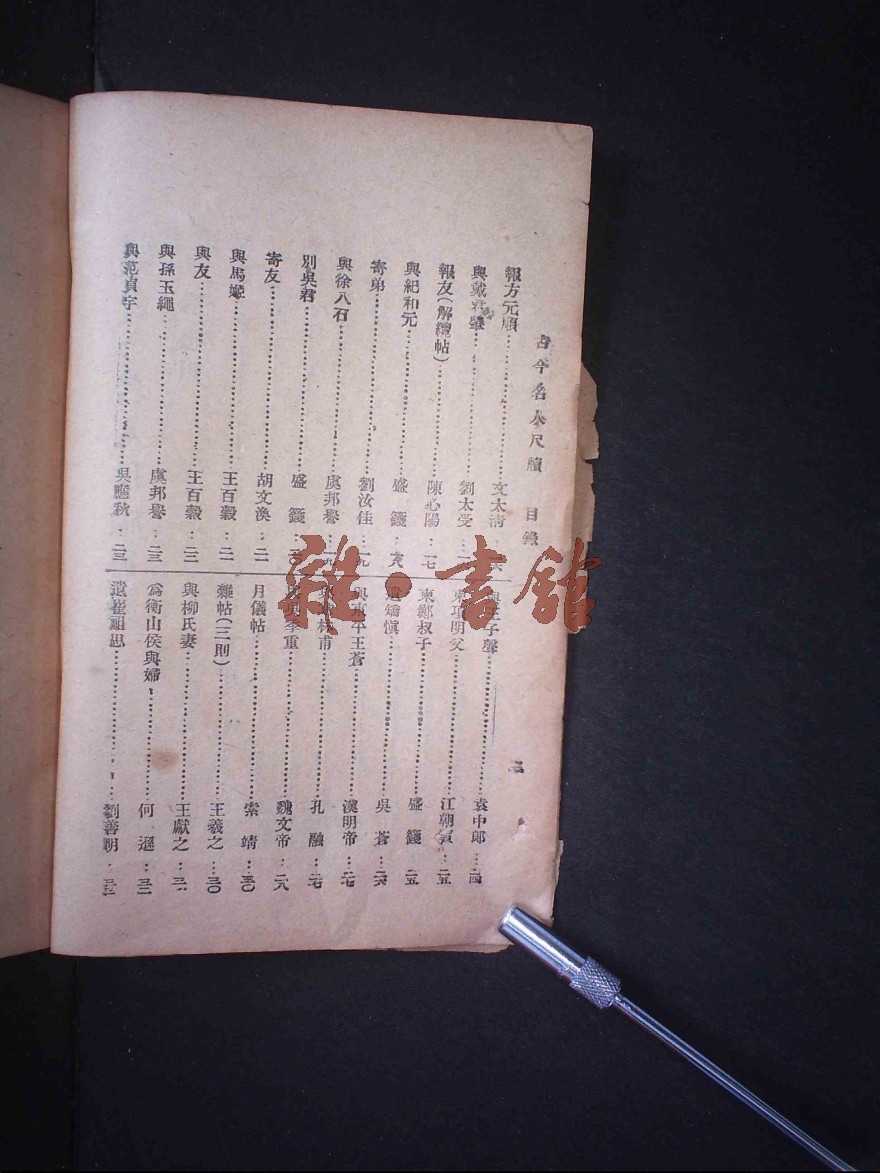 古今名人尺牘 目錄
二
報方元頤……文太清…一六
與戴君肇……劉太受…一
報友(解糟帖)……陳心陽…一七
與紀和元……盛籛…一八
寄弟……劉汝佳…一九
與徐八石……虞邦譽…一九
別吳君……盛籛…二〇
寄友……胡文渙…二一
與馬姬……王百穀…二一
與友……王百穀…二二
與孫玉繩……虞邦譽…二三
與范貞宇……吳應秋…二三
與王子聲……袁中郎…二四
柬項明父……江朝賓…二五
柬鄭叔子……盛籛…二五
遺矯慎……吳蒼…二六
與東平王蒼……漢明帝…二七
林甫……孔融…二七
季重……魏文帝…二八
月儀帖……索靖…三〇
雜帖(三則)……王羲之…三〇
與柳氏妻……王獻之…三一
為衡山侯與婦……何遜…三二
遺崔祖思……劉善明…三二
雜·書館